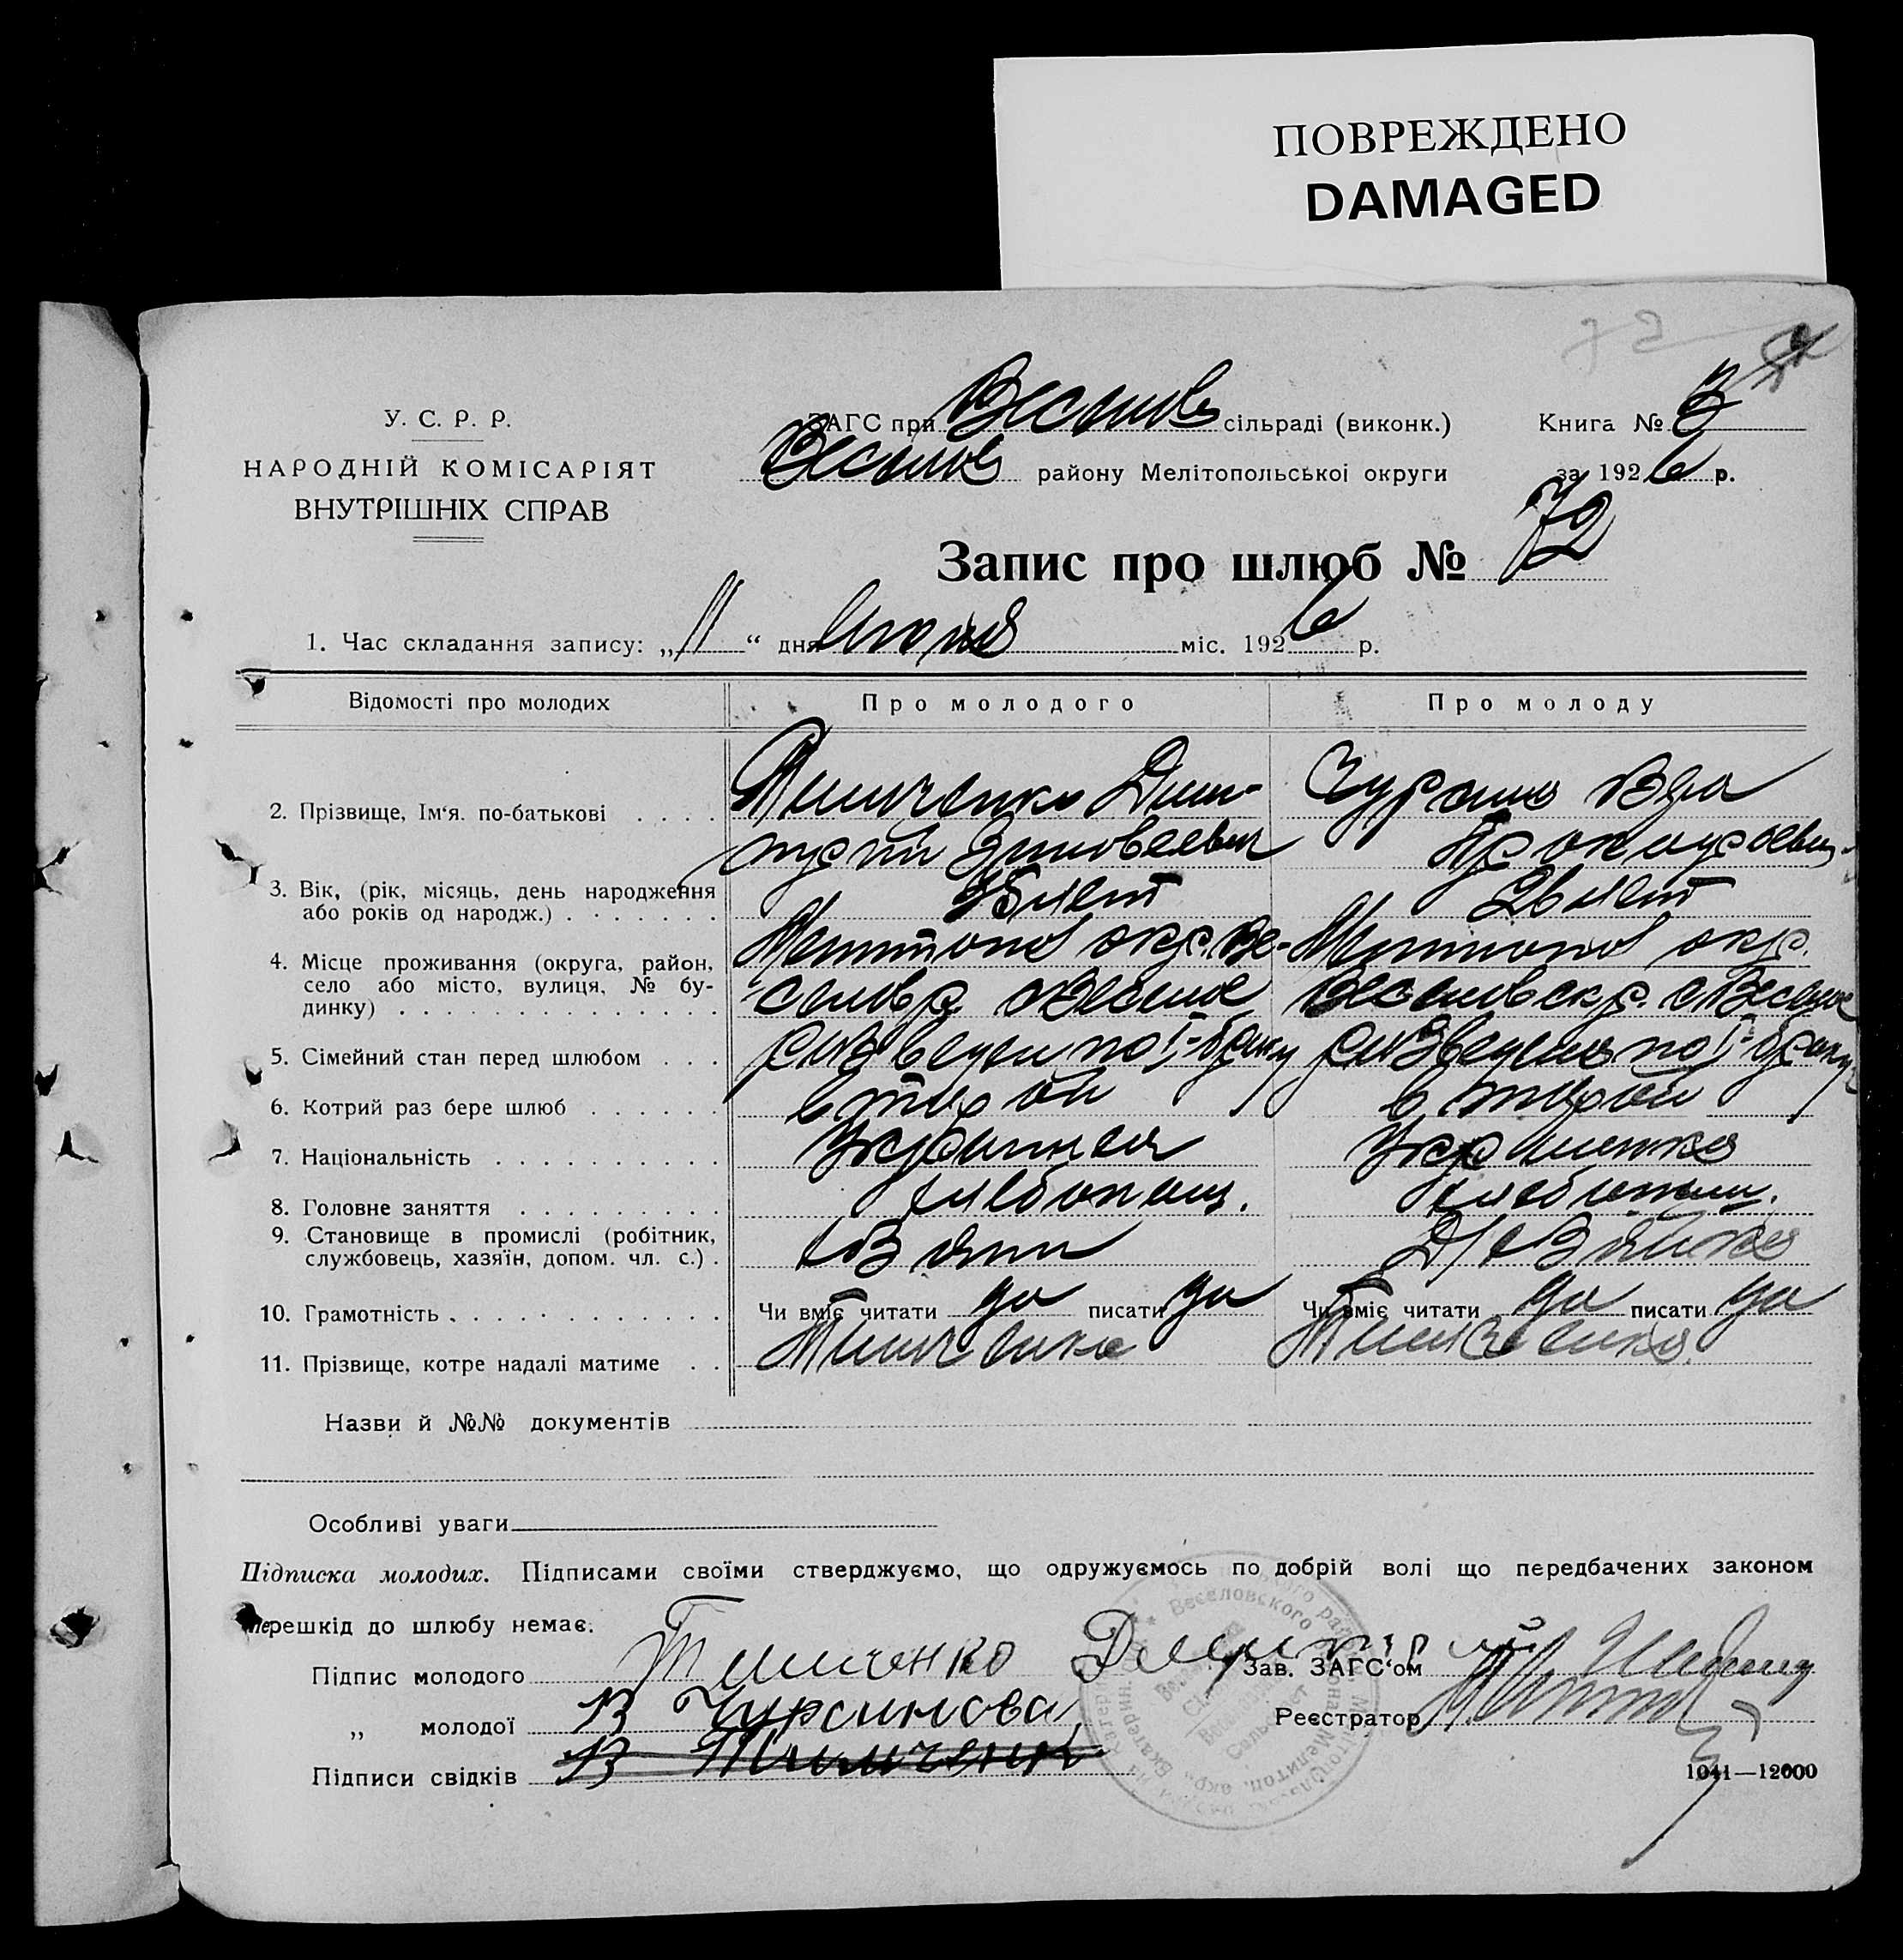 ПОВРЕЖДЕНО
DAMAGED
72
У. С. Р. Р.
НАРОДНІЙ КОМІСАРІЯТ
ВНУТРІШНІХ СПРАВ
ЗАГС при Веселов сільраді (виконк.) Книга № 3
Веселов району Мелітопольської округи за 1926 р.
Запис про шлюб № 72
1. Час складання запису: „11“ дня міс. 1926 р.
Відомості про молодих Про молодого Про молоду
2. Прізвище, Ім‘я. по-батькові Тимченко Дми- Вера
трий Зиновеевич
3. Вік, (рік, місяць, день народження
або років од народж.) лет 26 лет
4. Місце проживання (округа, район, Мелитопол окр. Ве- Мелитопол окр.
село або місто, вулиця, № бу- селов р с Веселое Веселовск р. с Веселое
динку)
5. Сімейний стан перед шлюбом разведен по I-браку разведена по I-браку
6. Котрий раз бере шлюб второй второй
7. Національність Украинец Украинка
8. Головне заняття хлебопаш. хлебопаш.
9. Становище в промислі (робітник,
службовець, хазяїн, допом. чл. с.)
10. Грамотність Чи вміє читати да писати да Чи вміє читати да писати да
11. Прізвище, котре надалі матиме Тимченко Тимченко
Назви й №№ документів
Особливі уваги
Підписка молодих. Підписами своїми стверджуємо, що одружуємось по добрій волі що передбачених законом
перешкід до шлюбу немає.
Підпис молодого Тимченко Зав. ЗАГС‘ом
„ молодої В Чурсинова Реєстратор
Підписи свідків В Тимченк
1041—12000